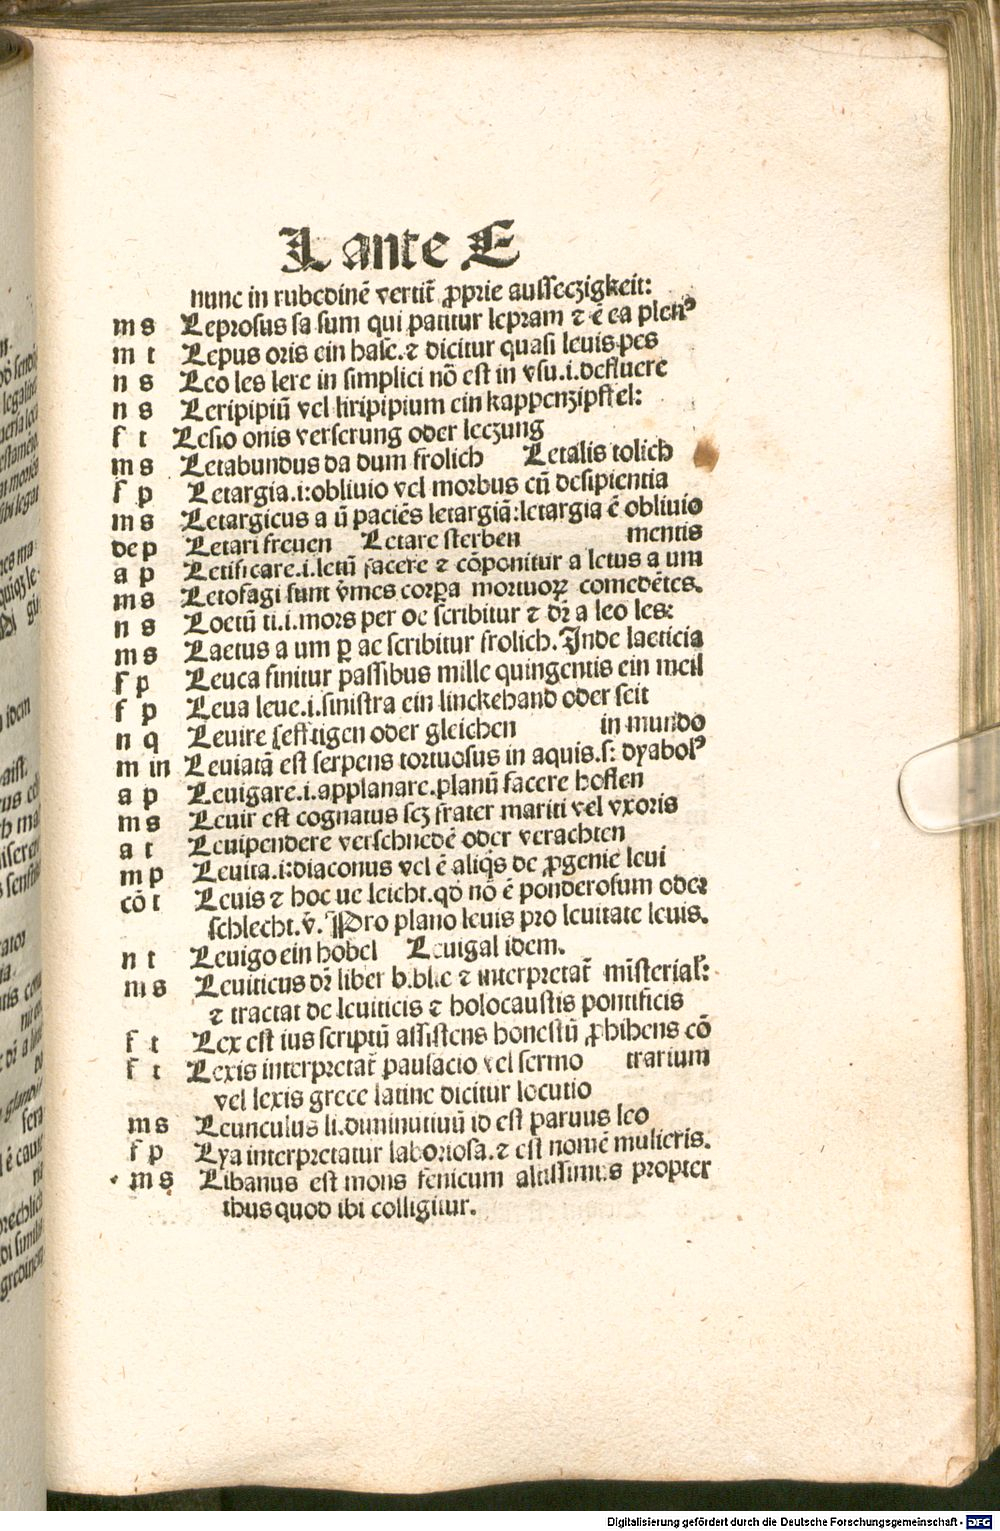 L ante E
nunc in rubedinē vertit̄ ꝓprie ausseczigkeit:
m s Leprosus sa sum qui patitur lepram ⁊ ē ea plenꝰ
m t Lepus oris ein hase.⁊ dicitur quasi leuis pes
n s Leo les lere in simplici nō est in vsu.i.defluere
n s Leripipiū vel liripipium ein kappenzipffel:
f t Lesio onis verserung oder leczung
m s Letabundus da dum frolich Letalis tolich
f p Letargia.i:obliuio vel morbus cū desipientia
m s Letargicus a ū paciēs letargiā:letargia ē obliuio
de p Letari freuen Letare sterben mentis
a p Letificare.i.letū facere ⁊ cōponitur a letus a um
m s Letofagi sunt v̄mes corꝑa mortuoꝝ comedētes.
n s Loetū ti.i.mors per oe scribitur ⁊ dr̄ a leo les:
m s Laetus a um ꝑ ae scribitur frolich. Inde laeticia
f p Leuca finitur passibus mille quingentis ein meil
f p Leua leue.i.sinistra ein linckehand oder seit
n q Leuire sefftigen oder gleichen in mundo
m in Leuiatā est serpens tortuosus in aquis.s: dyabolꝰ
a p Leuigare.i.applanare.planū facere hoflen
m s Leuir est cognatus scz frater mariti vel vxoris
a t Leuipendere verschnedē oder verachten
m p Leuita.i:diaconus vel ē aliq̄s de ꝓgenie leui
cō t Leuis ⁊ hoc ue leicht.qō nō ē ponderosum oder
schlecht.v̄. Pro plano leuis pro leuitate leuis.
n t Leuigo ein hobel Leuigal idem.
m s Leuiticus dr̄ liber biblie ⁊ interpretat̄ mīsterial̄:
⁊ tractat de leuiticis ⁊ holocaustis pontificis
f t Lex est ius scriptū assistens honestū ꝓhibens cō
f t Lexis interpretat̄ paulacio vel sermo trarium
vel lexis grece latine dicitur locutio
m s Leunculus li.diminutiuū id est paruus leo
f p Lya interpretatur laboriosa.⁊ est nomē mulieris.
m s Libanus est mons fenicum altissimus propter
thus quod ibi colligitur.
Digitalisierung gefördert durch die Deutsche Forschungsgemeinschaft - DFG